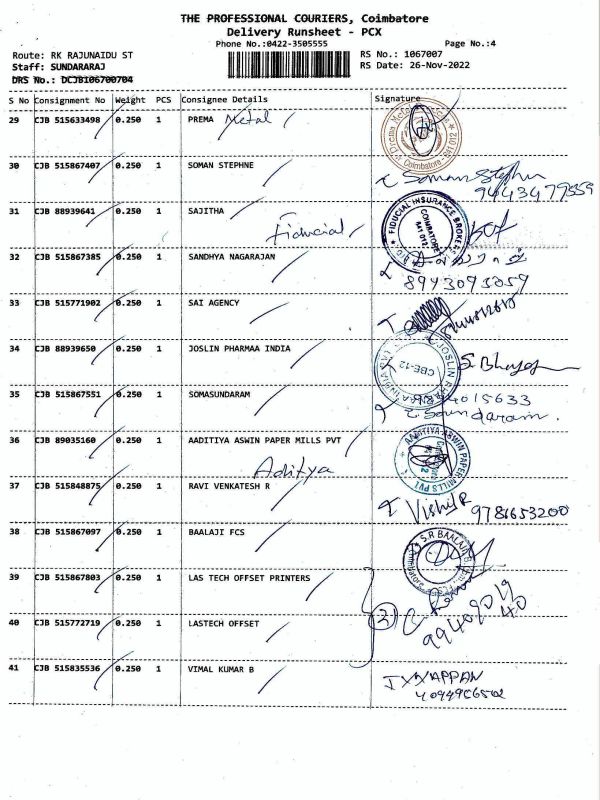 THE PROFESSIONAL COURIERS, Coimbatore
Delivery Runsheet - PCX
Phone No.:0422-3505555 Page No.:4
Route: RK RAJUNAIDU ST RS No.: 1067007
Staff: SUNDARARAJ RS Date: 26-Nov-2022
DRS No.: DCJB106700704
S No Consignment No Weight PCS Consignee Details Signature
29 CJB 515633498 0.250 1 PREMA Metal
30 CJB 515867407 0.250 1 SOMAN STEPHNE
Soman Stephn
9443479559
31 CJB 88939641 0.250 1 SAJITHA
Fiducial
FIDUCIAL INSURANCE BROKERS
COIMBATORE
641 012
32 CJB 515867385 0.250 1 SANDHYA NAGARAJAN
8943093059
33 CJB 515771902 0.250 1 SAI AGENCY
34 CJB 88939650 0.250 1 JOSLIN PHARMAA INDIA
CBE-12
35 CJB 515867551 0.250 1 SOMASUNDARAM
015633
Soundaram.
36 CJB 89035160 0.250 1 AADITIYA ASWIN PAPER MILLS PVT
Aditya
AADITIYA ASWIN PAPER MILLS PVT
37 CJB 515848875 0.250 1 RAVI VENKATESH R
9781653200
38 CJB 515867097 0.250 1 BAALAJI FCS
S.R BAALAJI
39 CJB 515867803 0.250 1 LAS TECH OFFSET PRINTERS
40 CJB 515772719 0.250 1 LASTECH OFFSET
3
99409019
40
41 CJB 515835536 0.250 1 VIMAL KUMAR B